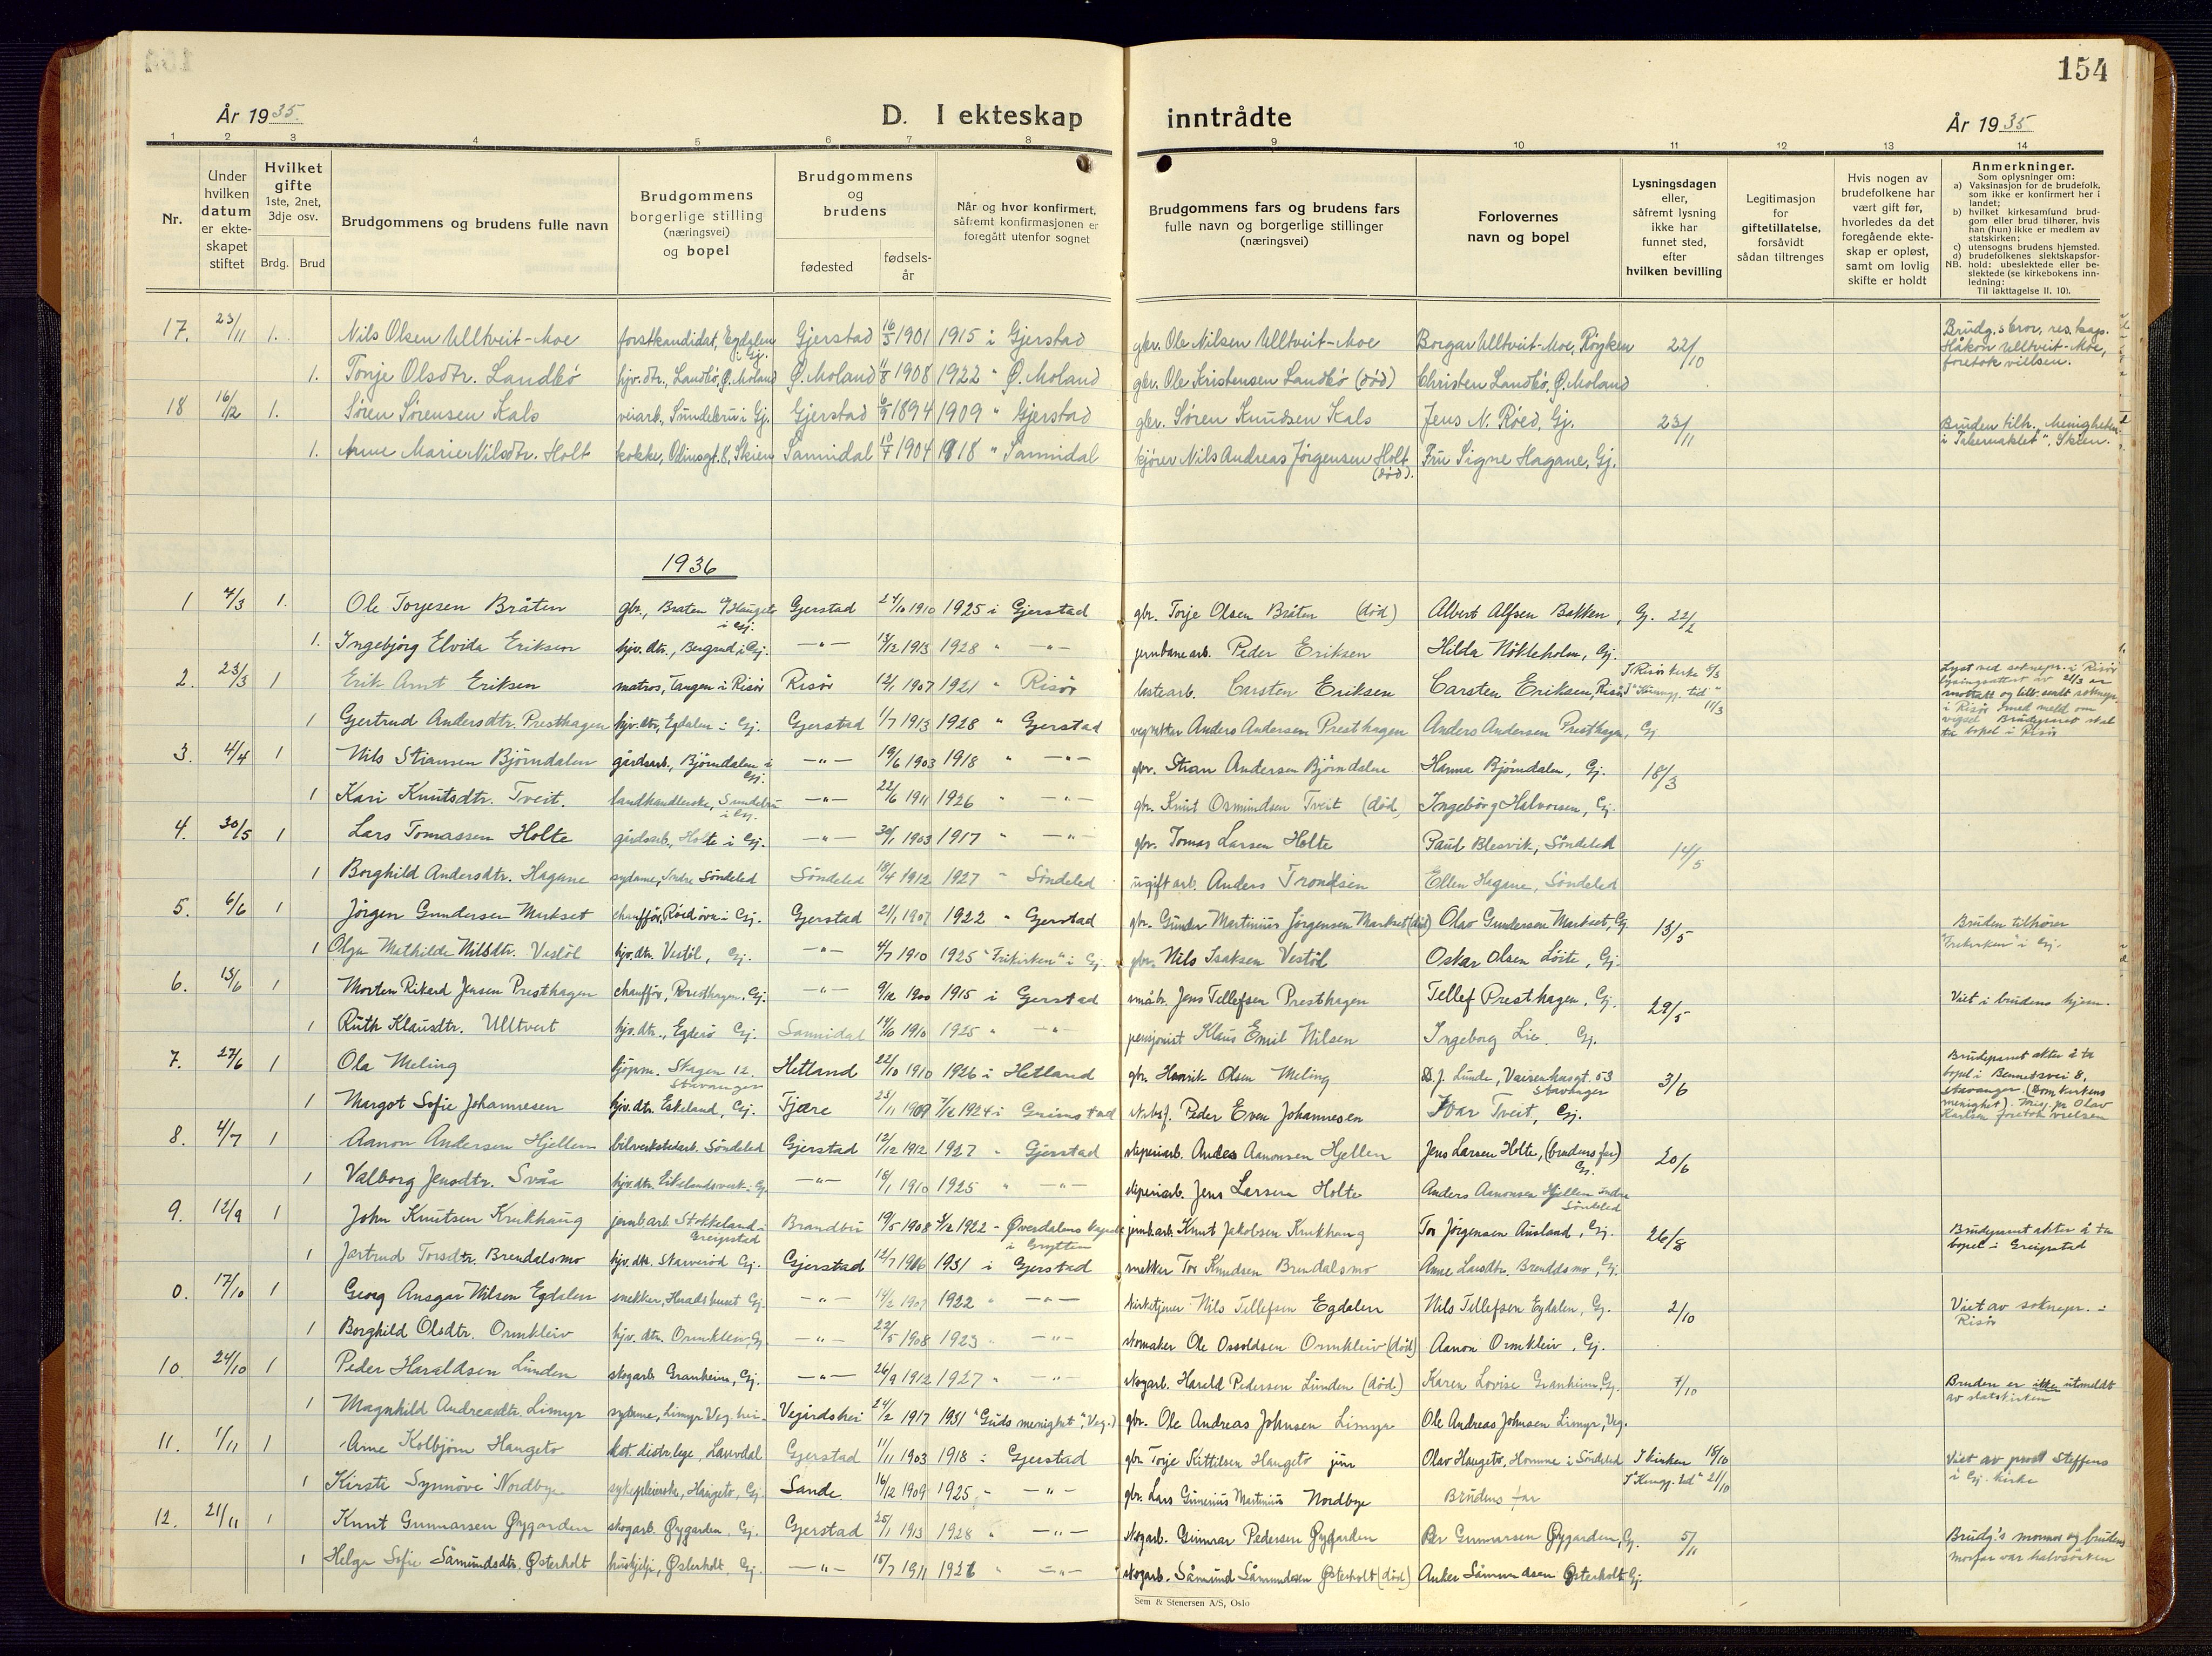 154
År 1935.
D. I ekteskap inntrådte
År 1935
1 2 3 4 5 6 7 8 9 10 11 12 13 14
Nr.
Under hvilken datum er ekteskapet stiftet
Hvilket gifte 1ste, 2net, 3dje osv.
Brdg. Brud
Brudgommens og brudens fulle navn
Brudgommens borgerlige stilling (næringsvei) og bopel
Brudgommens og brudens
fødested
fødselsår
Når og hvor konfirmert, såfremt konfirmasjonen er foregått utenfor sognet
Brudgommens fars og brudens fars fulle navn og borgerlige stillinger (næringsvei)
Forlovernes navn og bopel
Lysningsdagen eller, såfremt lysning ikke har funnet sted, efter hvilken bevilling
Legitimasjon for giftetillatelse, forsåvidt sådan tiltrenges
Hvis nogen av brudefolkene har vært gift før, hvorledes da det foregående ekteskap er opløst, samt om lovlig skifte er holdt
Anmerkninger.
Som oplysninger om:
a) Vaksinasjon for de brudefolk, som ikke er konfirmert her i landet;
b) hvilket kirkesamfund brudgom eller brud tilhører, hvis han (hun) ikke er medlem av statskirken;
c) utensogns brudens hjemsted.
d) brudefolkenes slektskapsforhold: ubeslektede eller beslektede (se kirkebokens innledning:
NB.
Til iakttagelse II. 10).
17. 23/11 1. Nils Olsen Ulltveit-Moe forstkandidat, Egdalen i Gj. Gjerstad 16/5 1901 1915 i Gjerstad gbr. Ole Nilsen Ulltveit-Moe Borgar Ulltveit-Moe, Røyken 22/10 Brudg.s bror, res. kap. Håkon Ulltveit-Moe, foretok vielsen.
1. Tonje Olsdtr. Landbö hjv. dtr., Landbö, Ø. Moland Ø. Moland 11/8 1908 1922 " Ø. Moland gbr. Ole Kristensen Landbö (död) Christen Landbö, Ø. Moland
18 16/12 1. Søren Sørensen Kals veiarb., Sundebru i Gj. Gjerstad 1894 1909 " Gjerstad gbr. Søren Knudsen Kals Jens N. Röed, Gj. 23/11 Bruden tilh. Menigheten i "Tabernaklet", Skien.
1. Anne Marie Nilsdtr. Holt kokke, Odinsgt. 8, Skien Sannidal 1904 1918 " Sannidal kjörer Nils Andreas Jörgensen Holt (död). Fru Signe Hagane, Gj.
1936
1 7/3 1. Ole Torjesen Bråten gbr., Bråten Haugeto i Gj. Gjerstad 24/10 1910 1925 i Gjerstad gbr. Torje Olsen Bråten (död) Albert Alfsen Bakken, Gj. 22/2
1. Ingebjörg Elvida Eriksen hjv. dtr., Bergrud i Gj. —"— 13/12 1913 1928 " —"— jernbanearb. Peder Eriksen Hilda Nökleholm, Gj.
2. 23/3 1 Erik Arnt Eriksen matros, Tangen i Risör Risör 12/1 1907 1921 " Risör lastearb. Carsten Eriksen Carsten Eriksen, Risör I Risör kirke 8/3 I "Kunngj. tid." 11/3 Lyst ved soknepr. i Risör lysingsattest av 21/3 er mottatt og tilb. sendt soknepr. i Risör med meld om vigsel Brudeparet skal ta bopel i Risör
1 Gjertrud Andersdtr. Presthagen hjv. dtr., Egdalen i Gj. Gjerstad 1/7 1913 1928 " Gjerstad vegvokter Anders Andersen Presthagen Anders Andersen Presthagen, Gj
3. 4/4 1 Nils Stiansen Björndalen gårdsarb., Björndalen i Gj. —"— 19/6 1903 1918 " —"— gbr. Stian Andersen Björndalen Hanna Björndalen, Gj. 18/3
1 Kari Knutsdtr. Tveit. landhandlerske, Sundebru i Gj. —"— 22/6 1911 1926 " —"— gbr. Knut Osmundsen Tveit (död) Ingebörg Halvorsen, Gj.
4. 30/5 1 Lars Tomassen Holte gårdsarb., Holte i Gj. —"— 30/1 1903 1917 " —"— gbr. Tomas Larsen Holte Paul Blesvik, Söndeled 14/5
1 Borghild Andersdtr. Hagane sydame, Indre Söndeled Söndeled 18/4 1912 1927 " Söndeled ugift arb. Anders Trondsen Ellen Hagane, Söndeled
5. 6/6 1 Jörgen Gundersen Merkset chaufför, Röed övre i Gj. Gjerstad 21/1 1907 1922 " Gjerstad gbr. Gunder Martinius Jörgensen Markset (död) Olav Gundersen Markset, Gj. 13/5 Bruden tilhörer "Frikirken" i Gj.
1 Olga Mathilde Nilsdtr. Vestöl hjv. dtr. Vestöl, Gj. —"— 4/7 1910 1925 "Frikirken" i Gj. gbr. Nils Isaksen Vestöl Oskar Olsen Löite, Gj.
6. 13/6 1 Morten Rikard Jensen Presthagen chaufför, Presthagen, Gj. —"— 9/12 1900 1915 i Gjerstad småbr. Jens Tellefsen Presthagen Tellef Presthagen, Gj. 29/5 Viet i brudens hjem.
1 Ruth Klausdtr. Ulltveit hjv. dtr., Egderö Gj. Sannidal 14/10 1910 1925 " —"— pensjonist Klaus Emil Nilsen Ingeborg Lie, Gj.
7. 27/6 1 Ola Meling kjöpm. Skagen 12. Stavanger Hetland 22/10 1910 1926 i Hetland gbr. Henrik Olsen Meling J. Lunde, Vaisenhusgt. 53 Stavanger 3/6 Brudeparet akter å ta bopel i Bennetsvei 8, Stavanger (Domkirkens menighet). Misj. pr. Olav Karlsen foretok vielsen
1 Margot Sofie Johannesen hjv. dtr. Eskeland, Gj. Fjære 23/11 1909 7/12 1924 i Grimstad Peder Even Johannesen Ivar Tveit, Gj.
8. 4/7 1 Aanon Andersen Hjellem bilverkstedarb. Söndeled Gjerstad 12/12 1912 1927 " Gjerstad sliperiarb. Anders Aanonsen Hjellen Jens Larsen Holte, (brudens far) Gj. 20/6
1 Valborg Jensdtr. Svåa hjv. dtr. Eikelandsverk, Gj. —"— 18/1 1910 1925 " —"— sliperiarb. Jens Larsen Holte Anders Aanonsen Hjellen indre Söndeled
9. 12/9 1 John Knutsen Krukhaug jernb.arb. Stokkeland, Greipstad Brandbu 19/5 1908 1922 - Øverdalens kapell i Grytten jernb.arb. Knut Jakobsen Krukhaug Tor Jörgensen Ausland, Gj. 26/8 Brudeparet akter å ta bopel i Greipstad
1 Jartrud Torsdtr. Brendalsmo hjv. dtr. Staiveröd Gj. Gjerstad 12/7 1916 1931 i Gjerstad snekker Tor Knudsen Brendalsmo Anne Larsdtr. Brendalsmo, Gj.
0. 17/10 1 Georg Ansgar Nilsen Egdalen snekker, Heradshuset Gj. —"— 14/2 1907 1922 " —"— kirketjener Nils Tellefsen Egdalen Nils Tellefsen Egdalen, Gj. 2/10 Viet av soknepr. i Risör
1 Borghild Olsdtr. Ormkleiv hjv. dtr. Ormkleiv, Gj. —"— 22/5 1908 1923 " —"— skomaker Ole Osvoldsen Ormkleiv (död) Aanon Ormkleiv, Gj.
10. 24/10 1 Peder Haraldsen Lunden skogarb. Granheim, Gj. —"— 26/9 1912 1927 " —"— skogarb. Harald Pedersen Lunden (död.) Karen Lovise Granheim, Gj. 7/10 Bruden er ikke utmeldt av statskirken
1 Magnhild Andreasdtr. Limyr sydame, Limyr Veg.hei. Vegårdshei 24/2 1917 1931 "Guds menighet", Veg.) gbr. Ole Andreas Johnsen Limyr Ole Andreas Johnsen Limyr, Veg.
11. 1/11 1 Arne Kolbjörn Haugeto kst. distr. lege, Lauvdal Gjerstad 11/11 1903 1918 i Gjerstad gbr. Torje Kittilsen Haugeto jun Olav Haugeto, Homme i Söndeled I kirken 18/10 I "Kungj. tid" 21/10 Viet av prost Steffens i Gj. kirke
1 Kirsti Synnöve Nordbye sykepleierske, Haugeto, Gj. Sande. 16/12 1909 1925 - —"— gbr. Lars Gunerius Martinius Nordbye Brudens far
12. 21/11 1 Knut Gunnarsen Øygarden skogarb. Øygarden, Gj. Gjerstad 25/1 1913 1928 " —"— skogarb. Gunnar Pedersen Øygarden Per Gunnarsen Øygarden, Gj. 5/11 Brudg's mormor og brudens morfar var halvsösken
1 Helga Sofie Såmundsdtr. Østerholt hushjelp, Østerholt, Gj. —"— 15/7 1911 1926 " —"— skogarb. Såmund Såmundsen Østerholt (död) Anker Såmundsen Østerholt Gj.
Sem & Stenersen A/S, Oslo